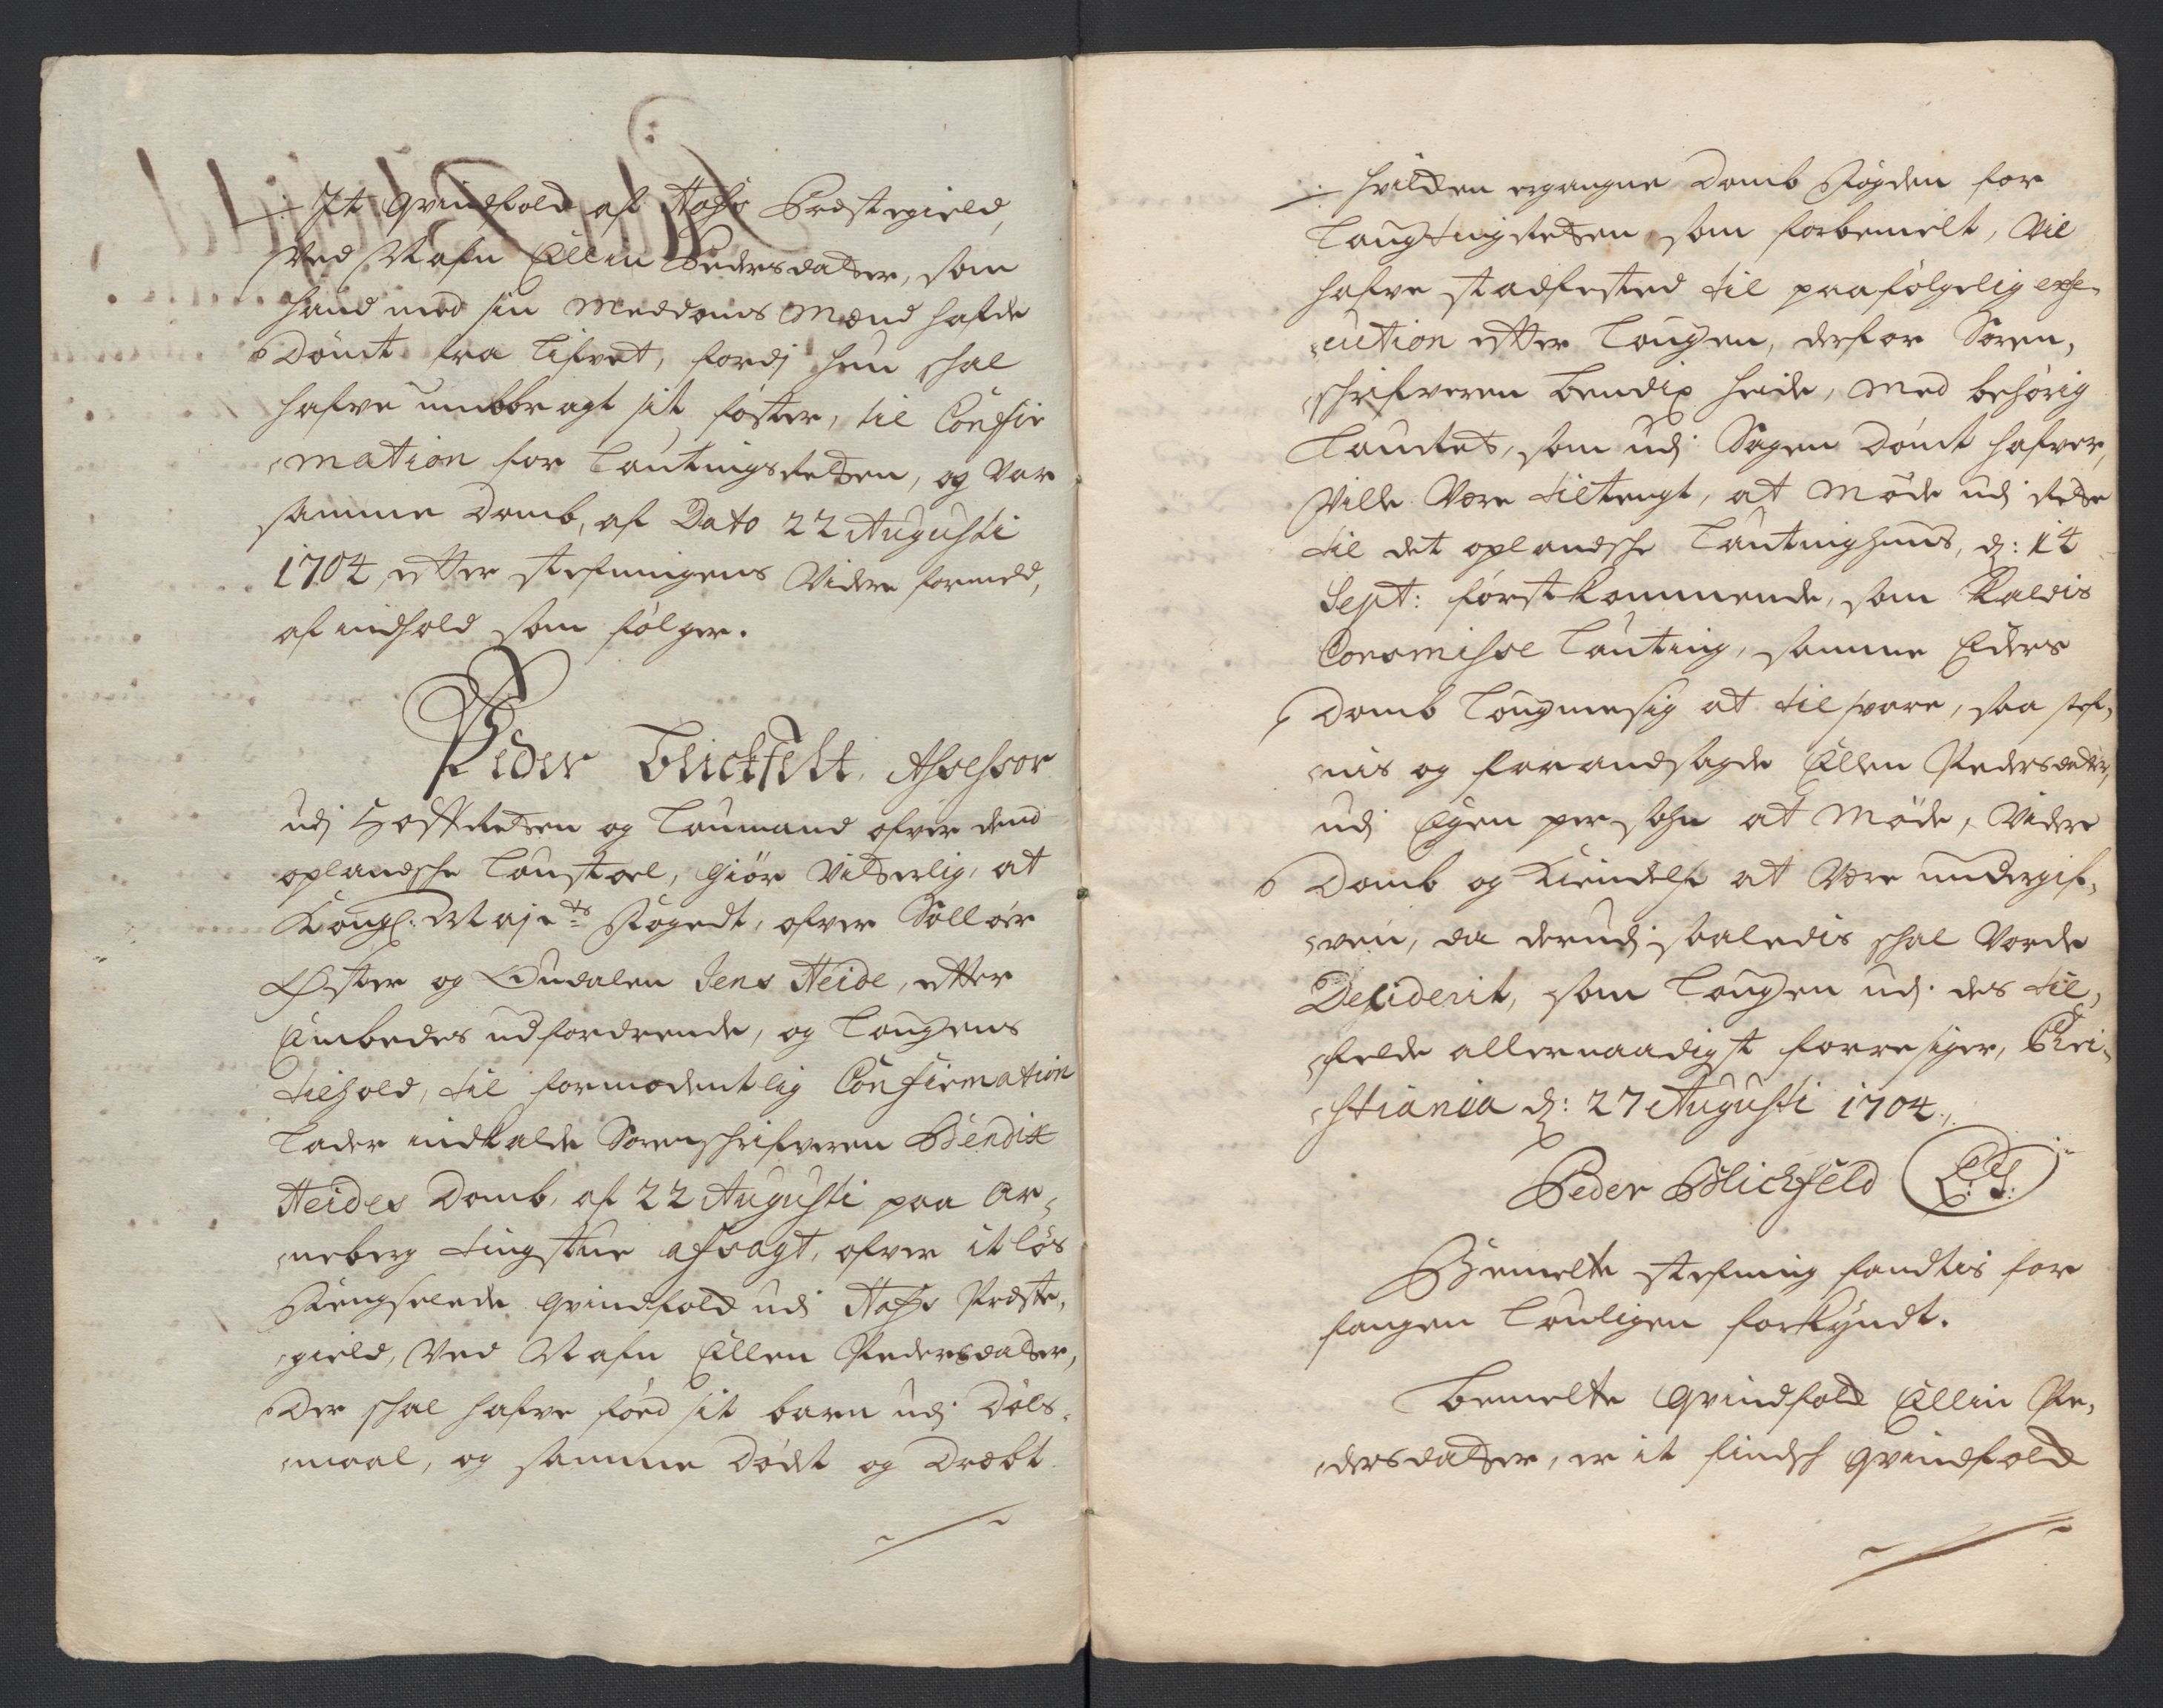 It Qvindfolck af Hofs Præstegield,
Ved Nafn Ellin Pedersdatter, som
hand med sin Meddoms Mænd hafde
Dömt fra Lifvet, fordj hun schal
hafve umbbragt sit foster, til Confir
mation for Lautingsretten, og Var
samme Domb, af Dato 22 Augusti
1704, etter stefningens Videre formeld,
af indhold som fölger.
Peder Blickfeldt, Assessor
udj HofRetten og Laumand ofver dend
oplandsche Laustoel, Giör Vitterlig, at
Kongl: Majets Fogedt, ofver Sollöer
Öster og Oudalen Jens Heide, etter
Embedes udfordrende, og Lougens
tilhold, til formodentlig Confirmation
Lader indkalde Sorenschrifveren Bendix
Heides Domb, af 22 Augusti paa Ar-
neberg tingstue afsagt, ofver it lös
Fengselede Qvindfolck udi Hofs Præste-
gield, Ved Nafn Ellen Pedersdatter,
Der schal hafve föed sit barn udj Döls-
maal, og samme Dödt og Dræbt
hvilcken ergangne Domb Fogden for
Laugtingsretten, som forbemelt, Vil
hafve stadfested til paafölgelig exse-
cution etter Lougen, derfor Soren-
schrifveren Bendix Heide, Med behörig
Laurett, som udj Sagen Dömt hafver,
Ville Være tiltengt, at Möde udj rette
til det oplandsche Lautinghuus, d: 14
Sept: förstkommende, som Kaldis
Commisse Lauting, samme Eders
Domb Lougmesig at tilsvare, saa stef-
nis og forandsagde Ellen Pedersdatter,
udj Egen persohn at Möde, Videre
Domb og Kiendelse at Være undergif-
ven, da derudj saaledis schal Vorde
Desiderit, som Lougen udj des til-
felde allernaadigst foresiger, Chri-
stiania d: 27 Augusti 1704.
Peder Blichfeld (L: S:)
Bemelte stefning fandtis for
fangen Louligen forkyndt.
Bemelte Qvindfolck Ellin Pe-
dersdatter, er it findsch Qvindfolck